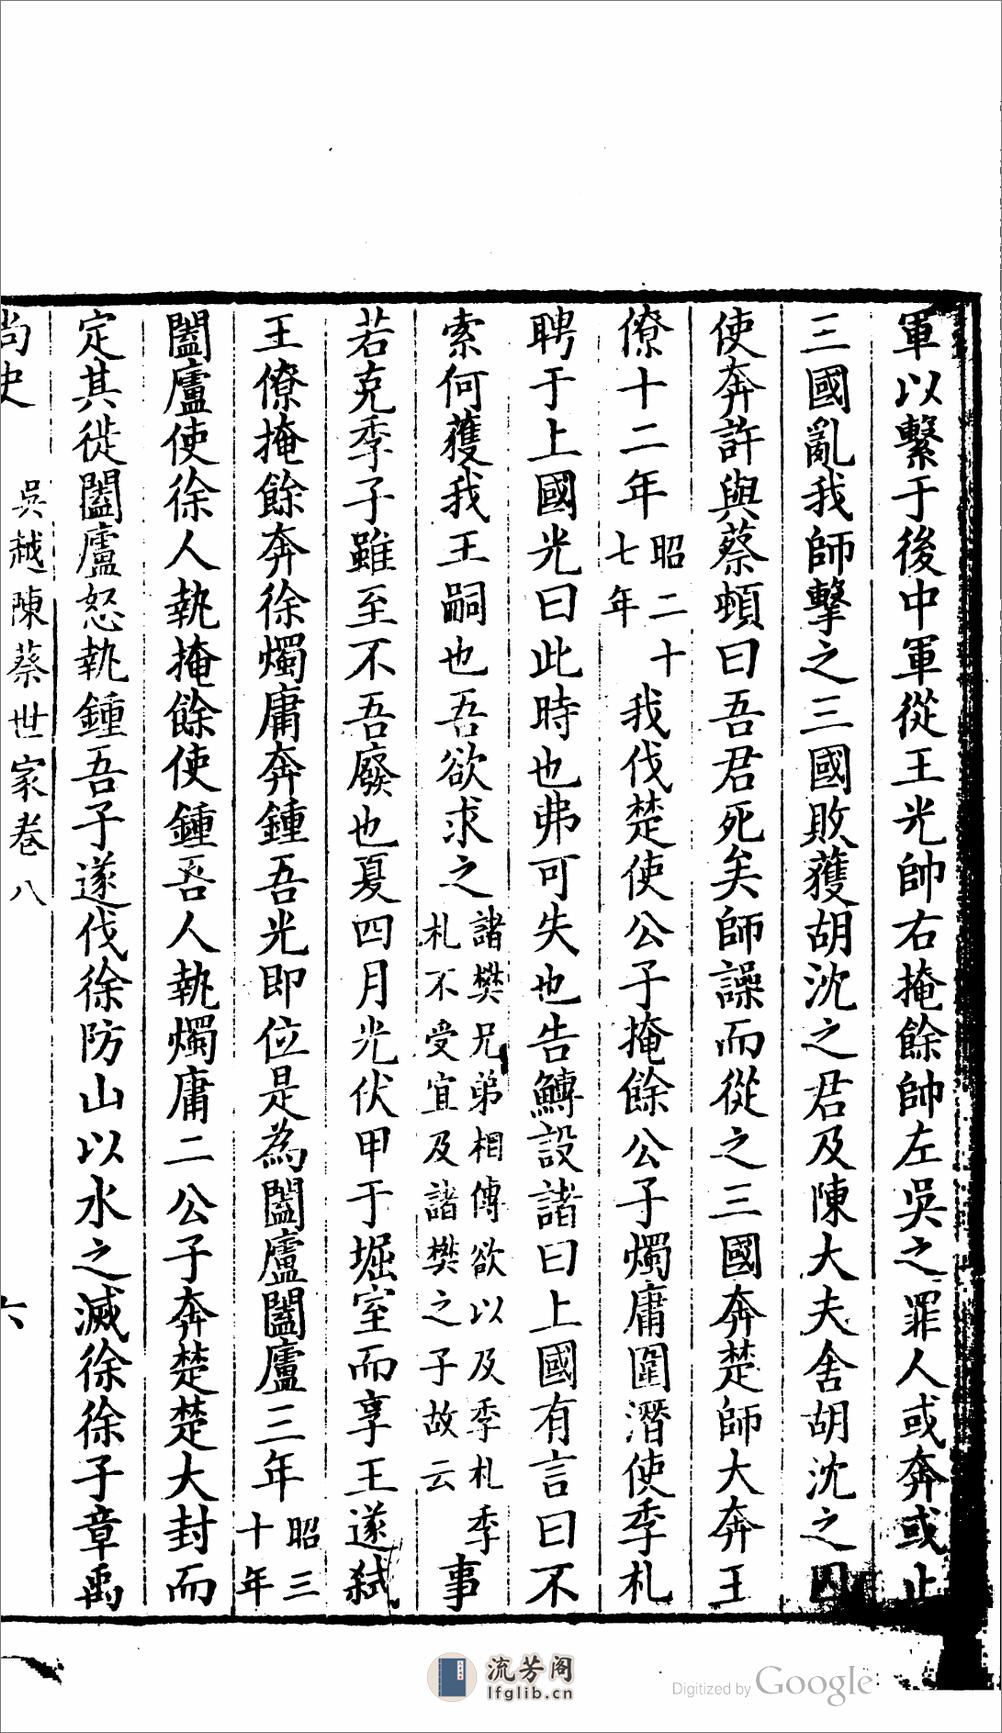 軍以繫于後中軍從王光帥右掩餘帥左吳之罪人或奔或止
三國亂我師擊之三國敗獲胡沈之君及陳大夫舍胡沈之囚
使奔許與蔡頓曰吾君死矣師譟而從之三國奔楚師大奔王
僚十二年昭二十七年我伐楚使公子掩餘公子燭庸圍潛使季札
聘于上國光曰此時也弗可失也告鱄設諸曰上國有言曰不
索何獲我王嗣也吾欲求之諸樊兄弟相傳欲以及季札季札不受宜及諸樊之子故云事
若克季子雖至不吾廢也夏四月光伏甲于堀室而享王遂弑
王僚掩餘奔徐燭庸奔鍾吾光即位是為闔廬闔廬三年昭三十年
闔廬使徐人執掩餘使鍾吾人執燭庸二公子奔楚楚大封而
定其徙闔廬怒執鍾吾子遂伐徐防山以水之滅徐徐子章禹
尚史 吳越陳蔡世家卷八 六
流芳阁
lfglib.cn
Digitized by Google